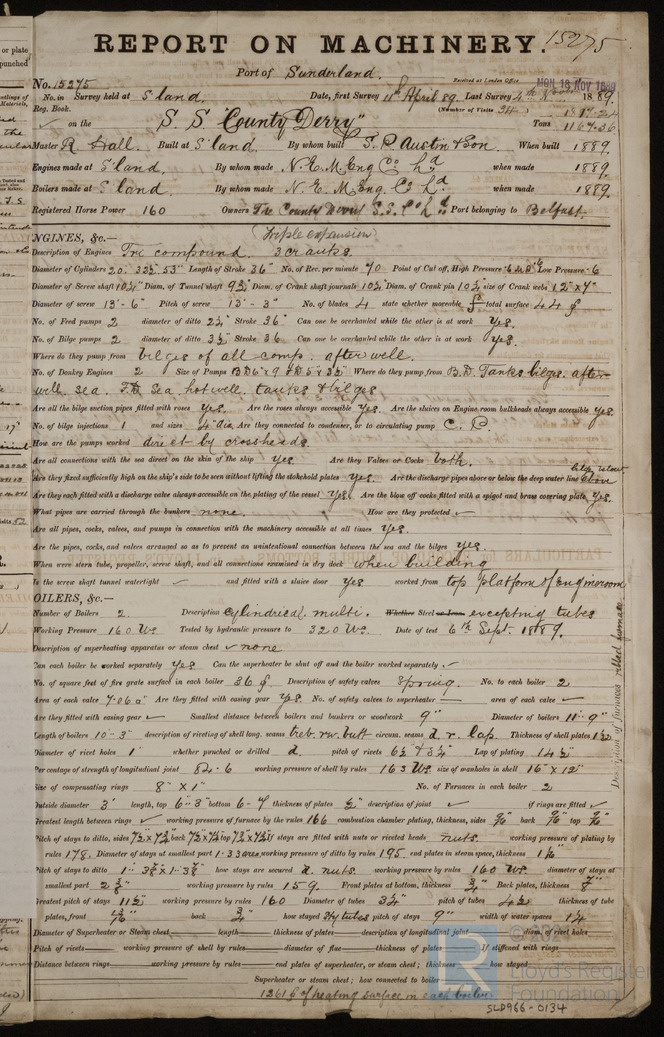 REPORT ON MACHINERY. 15275
Port of Sunderland.
Received at London Office MON 18 NOV 1889
No. 15275
No. in Survey held at S'land. Date, first Survey 11th April 89. Last Survey 1889.
Reg. Book. (Number of Visits 34)
on the S. S. "County Derry" Tons 1164.36
Master R Hall. Built at S'land. By whom built S. P Austin & Son. When built 1889.
Engines made at S'land. By whom made N. E. M. Eng Co Ld when made 1889.
Boilers made at S'land By whom made N. E. M. Eng. Co Ld. when made 1889.
Registered Horse Power 160 Owners The County Down S.S. Co Ld Port belonging to Belfast.
ENGINES, &c.— (Triple expansion)
Description of Engines Tri compound. 3 cranks.
Diameter of Cylinders 20. 32½. 53" Length of Stroke 36" No. of Rev. per minute 70 Point of Cut off, High Pressure Low Pressure .6
Diameter of Screw shaft 10¼" Diam. of Tunnel shaft 9¾" Diam. of Crank shaft journals 10¼ Diam. of Crank pin 10¼ size of Crank webs 12" x 7"
Diameter of screw 13'-6" Pitch of screw 13'-3" No. of blades 4 state whether moveable total surface 44
No. of Feed pumps 2 diameter of ditto 2¾" Stroke 36" Can one be overhauled while the other is at work Yes.
No. of Bilge pumps 2 diameter of ditto 3½" Stroke 36 Can one be overhauled while the other is at work Yes.
Where do they pump from bilges of all comp. after well.
No. of Donkey Engines 2 Size of Pumps Where do they pump from B.D. Tanks bilges. after
well. sea. F.D. Sea. hotwell. tanks & bilges
Are all the bilge suction pipes fitted with roses Yes. Are the roses always accessible Yes. Are the sluices on Engine room bulkheads always accessible Yes.
No. of bilge injections 1 and sizes 4" dia. Are they connected to condenser, or to circulating pump C. P.
How are the pumps worked direct by crossheads.
Are all connections with the sea direct on the skin of the ship Yes Are they Valves or Cocks both.
Are they fixed sufficiently high on the ship's side to be seen without lifting the stokehold plates Yes. Are the discharge pipes above or below the deep water line above
Are they each fitted with a discharge valve always accessible on the plating of the vessel Yes. Are the blow off cocks fitted with a spigot and brass covering plate Yes.
What pipes are carried through the bunkers none. How are they protected ✓
Are all pipes, cocks, valves, and pumps in connection with the machinery accessible at all times Yes.
Are the pipes, cocks, and valves arranged so as to prevent an unintentional connection between the sea and the bilges Yes.
When were stern tube, propeller, screw shaft, and all connections examined in dry dock when building
Is the screw shaft tunnel watertight ✓ and fitted with a sluice door Yes worked from top platform of Engineroom
BOILERS, &c.—
Number of Boilers 2. Description Cylindrical. multi. Whether Steel or Iron excepting tubes
Working Pressure 160 lbs Tested by hydraulic pressure to 320 lbs. Date of test 6th Sept. 1889.
Description of superheating apparatus or steam chest ✓ none
Can each boiler be worked separately Yes Can the superheater be shut off and the boiler worked separately ✓
No. of square feet of fire grate surface in each boiler 36 Description of safety valves Spring. No. to each boiler 2
Area of each valve 7.06 Are they fitted with easing gear Yes. No. of safety valves to superheater — area of each valve ✓
Are they fitted with easing gear ✓ Smallest distance between boilers and bunkers or woodwork 9" Diameter of boilers 11'-9"
Length of boilers 10'-3" description of riveting of shell long. seams treb. riv. butt circum. seams d. r. lap. Thickness of shell plates
Diameter of rivet holes 1" whether punched or drilled d pitch of rivets Lap of plating 14½"
Percentage of strength of longitudinal joint 84.6 working pressure of shell by rules 163 lbs size of manholes in shell 16" x 12"
Size of compensating rings 8" x 1" No. of Furnaces in each boiler 2
Outside diameter 3' length, top 6'-3" bottom 6-7 thickness of plates ½" description of joint ✓ if rings are fitted ✓
Greatest length between rings ✓ working pressure of furnace by the rules 166 combustion chamber plating, thickness, sides 9/16" back 9/16" top 9/16"
Pitch of stays to ditto, sides 7½" x 7¾" back 7½" x 7½" top 7¾" x 7½" If stays are fitted with nuts or riveted heads nuts. working pressure of plating by
rules 178. Diameter of stays at smallest part 1.33 area working pressure of ditto by rules 195 end plates in steam space, thickness
Pitch of stays to ditto how stays are secured d. nuts. working pressure by rules 160 lbs. diameter of stays at
smallest part working pressure by rules 159. Front plates at bottom, thickness ¾" Back plates, thickness
Greatest pitch of stays 11½ working pressure by rules 160 Diameter of tubes 3¼" pitch of tubes 4½ thickness of tube
plates, front back ¾" how stayed by tubes pitch of stays 9" width of water spaces 1¼
Diameter of Superheater or Steam chest length thickness of plates description of longitudinal joint diam. of rivet holes
Pitch of rivets working pressure of shell by rules diameter of flue thickness of plates If stiffened with rings
Distance between rings working pressure by rules end plates of superheater, or steam chest; thickness how stayed
Superheater or steam chest; how connected to boiler
1361 of heating surface in each boiler
Description of furnaces ribbed furnace
Lloyd's Register
Foundation
SLD966-0134